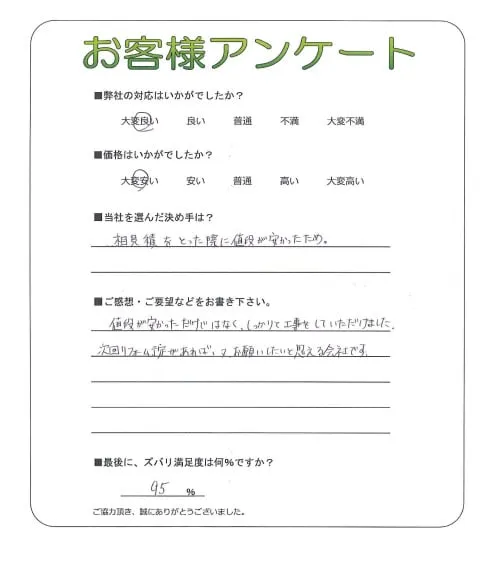 お客様アンケート
■弊社の対応はいかがでしたか？
大変良い 良い 普通 不満 大変不満
■価格はいかがでしたか？
大変安い 安い 普通 高い 大変高い
■当社を選んだ決め手は？
相見積をとった際に値段が安かったため。
■ご感想・ご要望などをお書き下さい。
値段が安かっただけではなく、しっかりと工事をしていただけました。
次回リフォーム予定があれば、又お願いしたいと思える会社です。
■最後に、ズバリ満足度は何%ですか？
95 %
ご協力頂き、誠にありがとうございました。